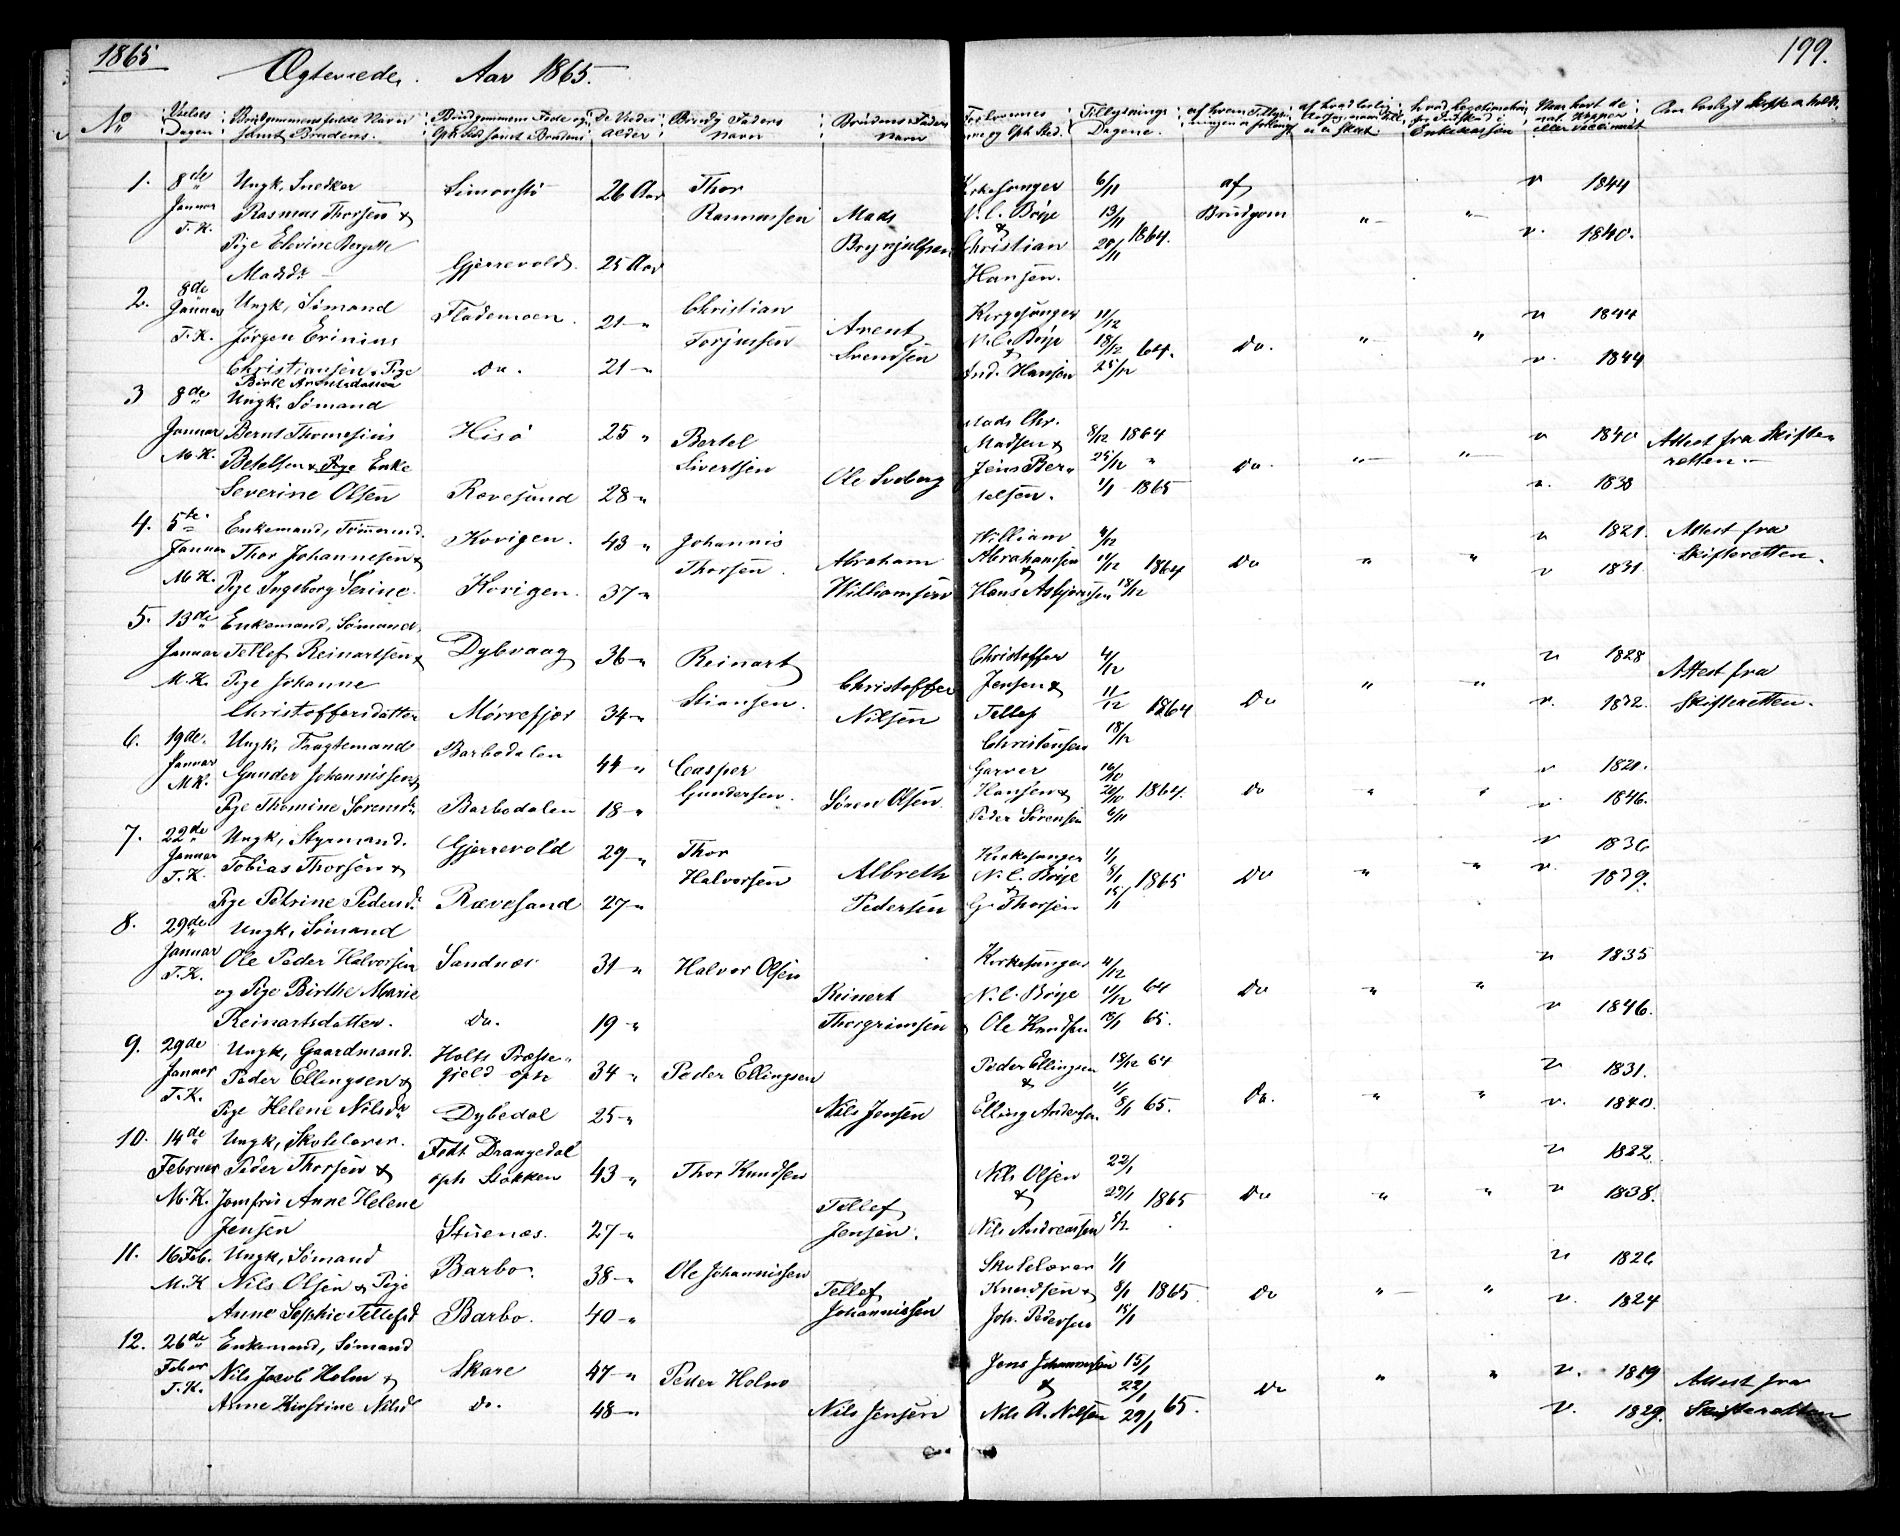 1865
Ægteviede. Aar 1865.
199.
No
Vielses Dagen
Brudgommens fulde Navn samt Brudens.
De Viedes Alder
Brudg. Faders Navn
Brudens Faders Navn
Forlovernes Navne og Oph. Sted.
Tillysnings Dagene.
1. 8de Januar T. K.
Ungk, Snedker
Rasmus Thorsen &
Pige Elevine Bergette
Madsdr
Simonstø
Gjerrevold
26 Aar
25 Aar
Thor
Rasmussen
Mads
Brynjulfsen
Kirkesanger
N. C. Bøye
&
Christian
Hansen.
6/11
13/11
20/11 1864.
af
Brudgom
v 1844
v. 1840.
2. 8de Januar T. K.
Ungk, Sømand
Jørgen Erinius
Christiansen & Pige
Birte Arentsdatter
Flademoen.
Do.
21 "
21 "
Christian
Torjussen
Arent
Svendsen
N. C. Bøye
&
And. Hansen
11/12
18/12 64.
25/12
Do.
v 1844
v. 1844
3 8de Januar M. K.
Ungk. Sømand
Bernt Thomesius
Betelsen & Pige Enke
Severine Olsen
Hisø
Rævesand
25 "
28 "
Bertel
Sivertsen
Ole Sveberg
Mads Chr.
Madsen &
Jens Ber-
telsen.
8/12 1864
25/12 "
1/1 1865
Do.
v 1840
v. 1838
Attest fra Skifte-
retten.
4. 5te Januar M. K.
Enkemand, Tømmermd.
Thor Johannesen &
Pige Ingeborg Serine
Kovigen.
Kovigen.
43 "
37 "
Johannis
Thorsen.
Abraham
Williamsen
William
Abrahamsen
&
Hans Asbjørnsen
4/12
11/12 1864
18/12
Do
v 1821.
v 1831.
Attest fra
Skifteretten.
5. 13de Januar M. K.
Enkemand, Sømand,
Tellef Reinartsen &
Pige Johanne
Christoffersdatter
Dybvaag
Mørrefjær
36 "
34 "
Reinart
Stiansen.
Christoffer
Nilsen
Christoffer
Jensen &
Tellef
Christensen
4/12
11/12 1864
18/12
Do
v 1828
v. 1832.
Attest fra
Skifteretten.
6. 19de. Januar M. K.
Ungk, Fragtemand
Gunder Johannissen &
Pige Thomine Sørensdr
Barbodalen
Barbodalen
44 "
18 "
Casper
Gundersen.
Søren Olsen
Garver
Hansen &
Peder Sørensen
16/10
1864.
6/11
Do
v 1820.
v. 1846.
7. 22de Januar T. K.
Ungk, Styrmand.
Tobias Thorsen &
Pige Petrine Pedersdr
Gjerrevold
Rævesand
29 "
27 "
Thor
Halvorsen
Albreth
Pedersen
Kirkesanger
N. C. Bøye
&
G. Thorsen
1/1
8/1 1865
15/1
Do
v 1836
v. 1839.
8. 29de Januar T. K.
Ungk, Sømand
Ole Peder Halvorsen
og Pige Birthe Marie
Reinartsdatter.
Sandnæs
Do.
31 "
19 "
Halvor Olsen
Reinert
Thorgrimsen
Kirkesanger
N. C. Bøye
Ole Knudsen
64
65.
Do
v 1835
v 1846.
9. 29de Januar T. K.
Ungk, Gaardmand.
Peder Ellingsen &
Pige Helene Nilsdr
Holts Præste-
gjeld oph
Dybedal
34 "
25 "
Peder Ellingsen
Nils Jensen
Peder Ellingsen
&
Elling Andersen
18/12 64
1/1
8/1 65.
Do.
v 1831.
v. 1840.
10. 14de Februar M. K.
Ungk, Skolelærer.
Peder Thorsen &
Jomfru Anne Helene
Jensen
Født Drangedal
oph Stokken
Stuenæs.
43 "
27 "
Thor Knudsen
Tellef
Jensen.
Nils Olsen
&
Nils Andreassen
22/1
29/1 1865
5/2
Do
v 1822.
v 1838.
11. 16 Feb. M. K
Ungk, Sømand
Nils Olsen & Pige
Anne Sophie Tellefsd
Barbo.
Barbo.
38 "
40 "
Ole Johannissen
Tellef
Johannissen
Skolelærer
Knudsen &
Joh. Pedersen
1/1
8/1 1865
15/1
Do
v 1826
v. 1824
12. 26de Febuar T. K.
Enkemand, Sømand
Nils Jacob Holm &
Anne Kirstine Nilsd
Skare
do.
47 "
48 "
Peder Holm
Nils Jensen
Jens Johannessen
&
Nils A. Nilsen
15/1
22/1
29/1 65.
Do
v. 1819
v. 1829.
Attest fra
Skifteretten